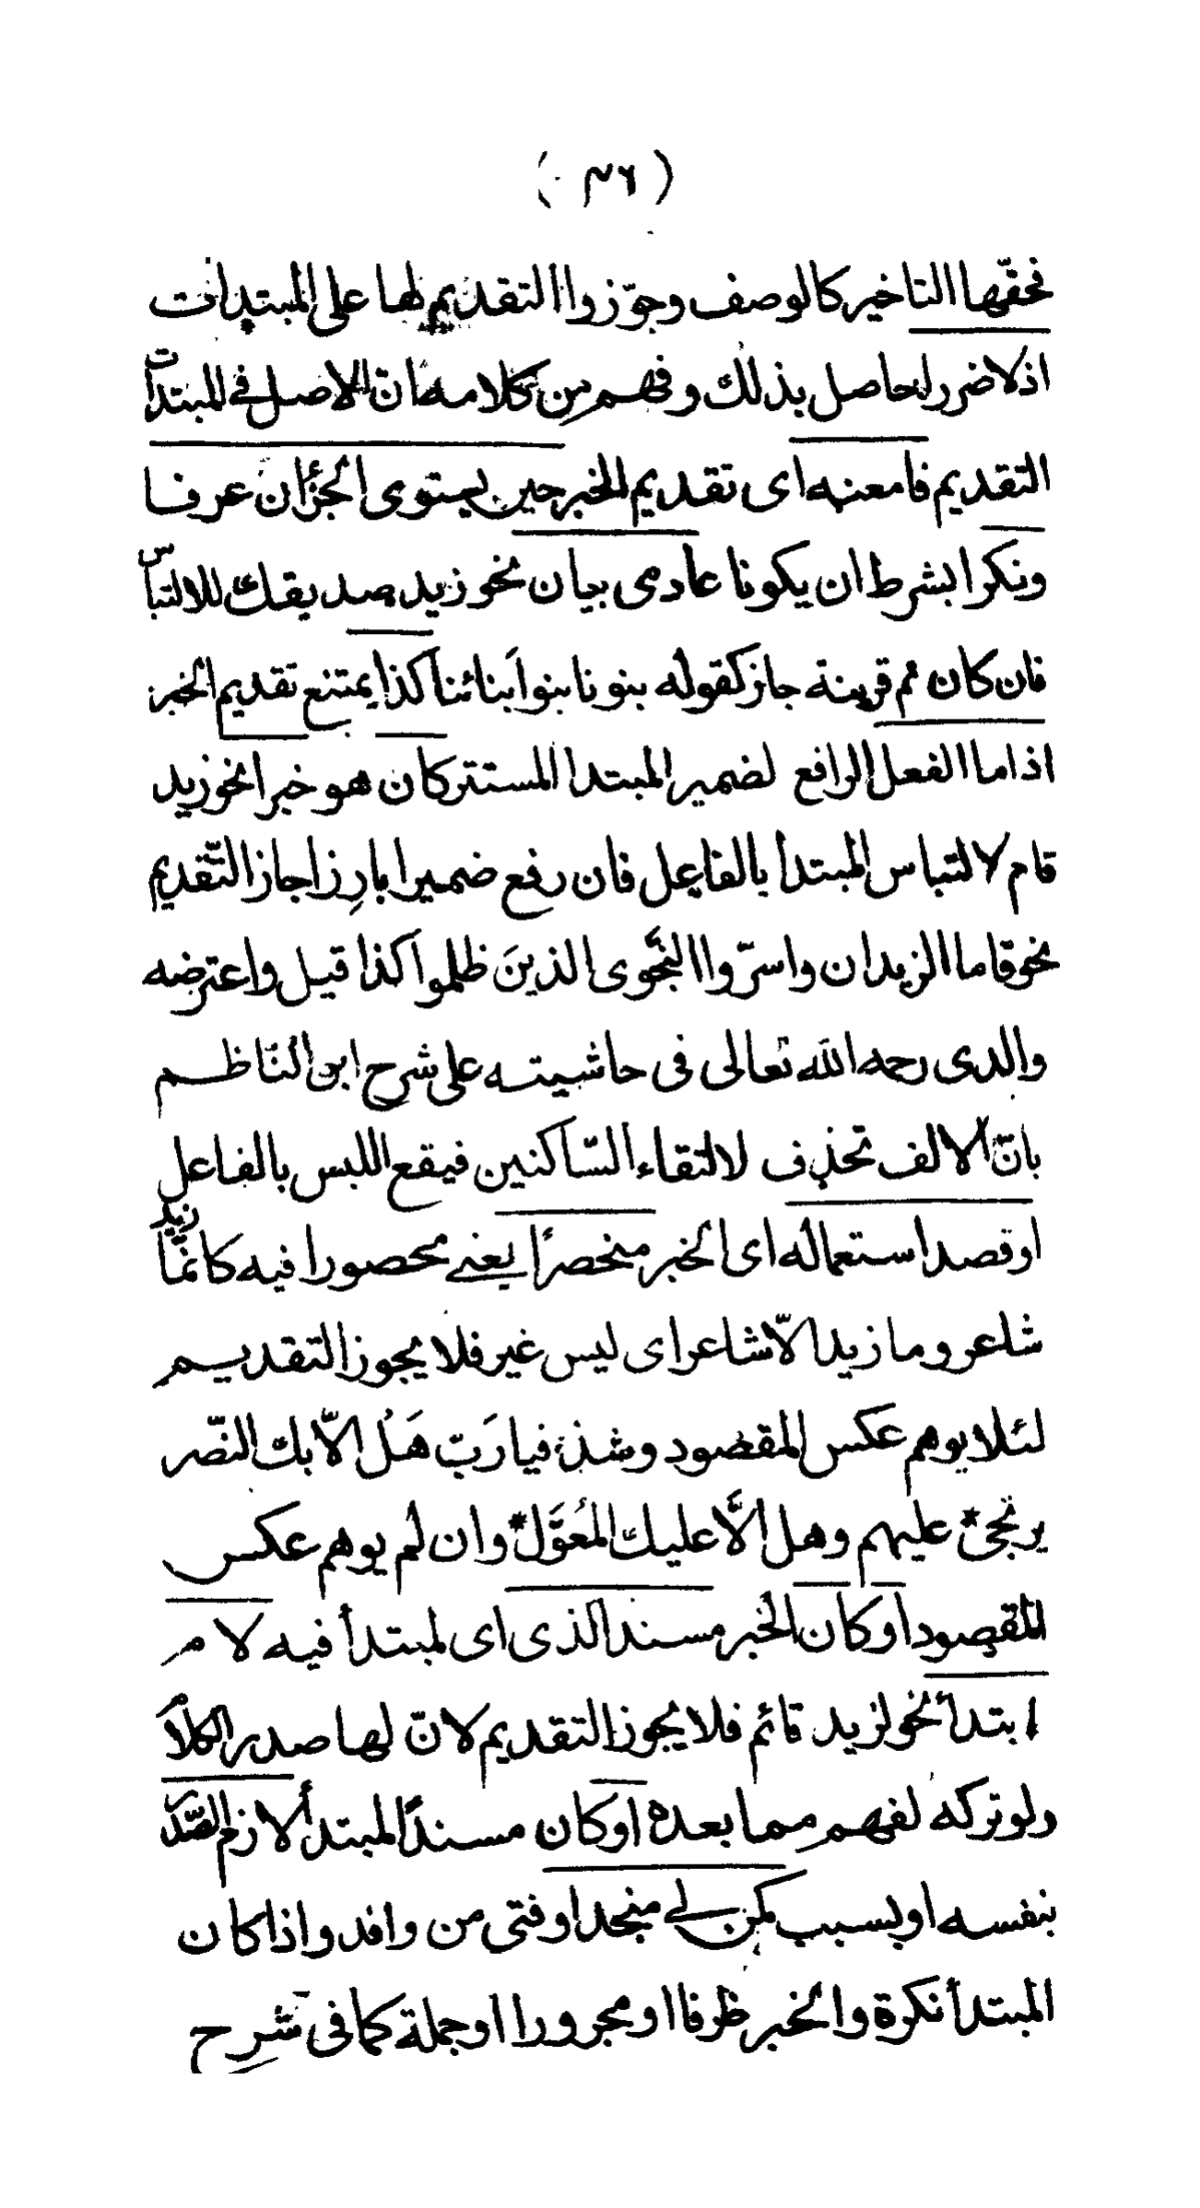 ( ٤٦ )
فحقّها التاخير كالوصف وجوّزوا التقديم لها على المبتدات
اذلا ضرر لحاصل بذلك وفهم من كلامه ان الاصل فى المبتدات
التقديم فامعنه اى تقديم الخبر حين يستوى الجزٔان عرفا
ونكرا بشرط ان يكونا عادمى بيان نحو زيد صديقك للالتباس
فان كان ثم قرينة جاز كقوله بنونا بنوا بنائنا كذا يمتنع تقديم الخبر
اذا ما الفعل الرافع لضمير المبتدا المستتر كان هو خبرا نحو زيد
قام لالتباس المبتدأ بالفاعل فان رفع ضميرا بارزا جاز التّقديم
نحو قاما الزيدان واسرّوا النّجوى الذينَ ظلموا كذا قيل واعترضه
والدى رحمه الله تعالى فى حاشيته على شرح ابن النّاظم
بانّ الالف تحذف لالتقاء السّاكنين فيقع اللبس بالفاعل
اوقصد استعماله اى الخبر منحصرًا يعنے محصورا فيه كانمّا زيد
شاعر وما زيد الّا شاعر اى ليس غير فلا يجوز التقديم
لئلا يوهم عكس المقصود وشذ فيا رَبّ هَل الّا بك النصّر
يرتجىٰ * عليهم وهل الَّا عليك المُعَوَّل * وان لم يوهم عكس
المقصود اوكان الخبر مسندا لذى اى لمبتدأ فيه لام
ابتدأ نحو لزيد قائم فلا يجوز التقديم لانّ لها صدر الكلام
ولو تركه لفهم مما بعده اوكان مسندًا لمبتدأ لازم الصّدر
بنفسه او بسبب كمن لے منجدا وفتى من وافد واذا كان
المبتدأ نكرة والخبر ظرفا او مجرورا او جملة كما فى شرح